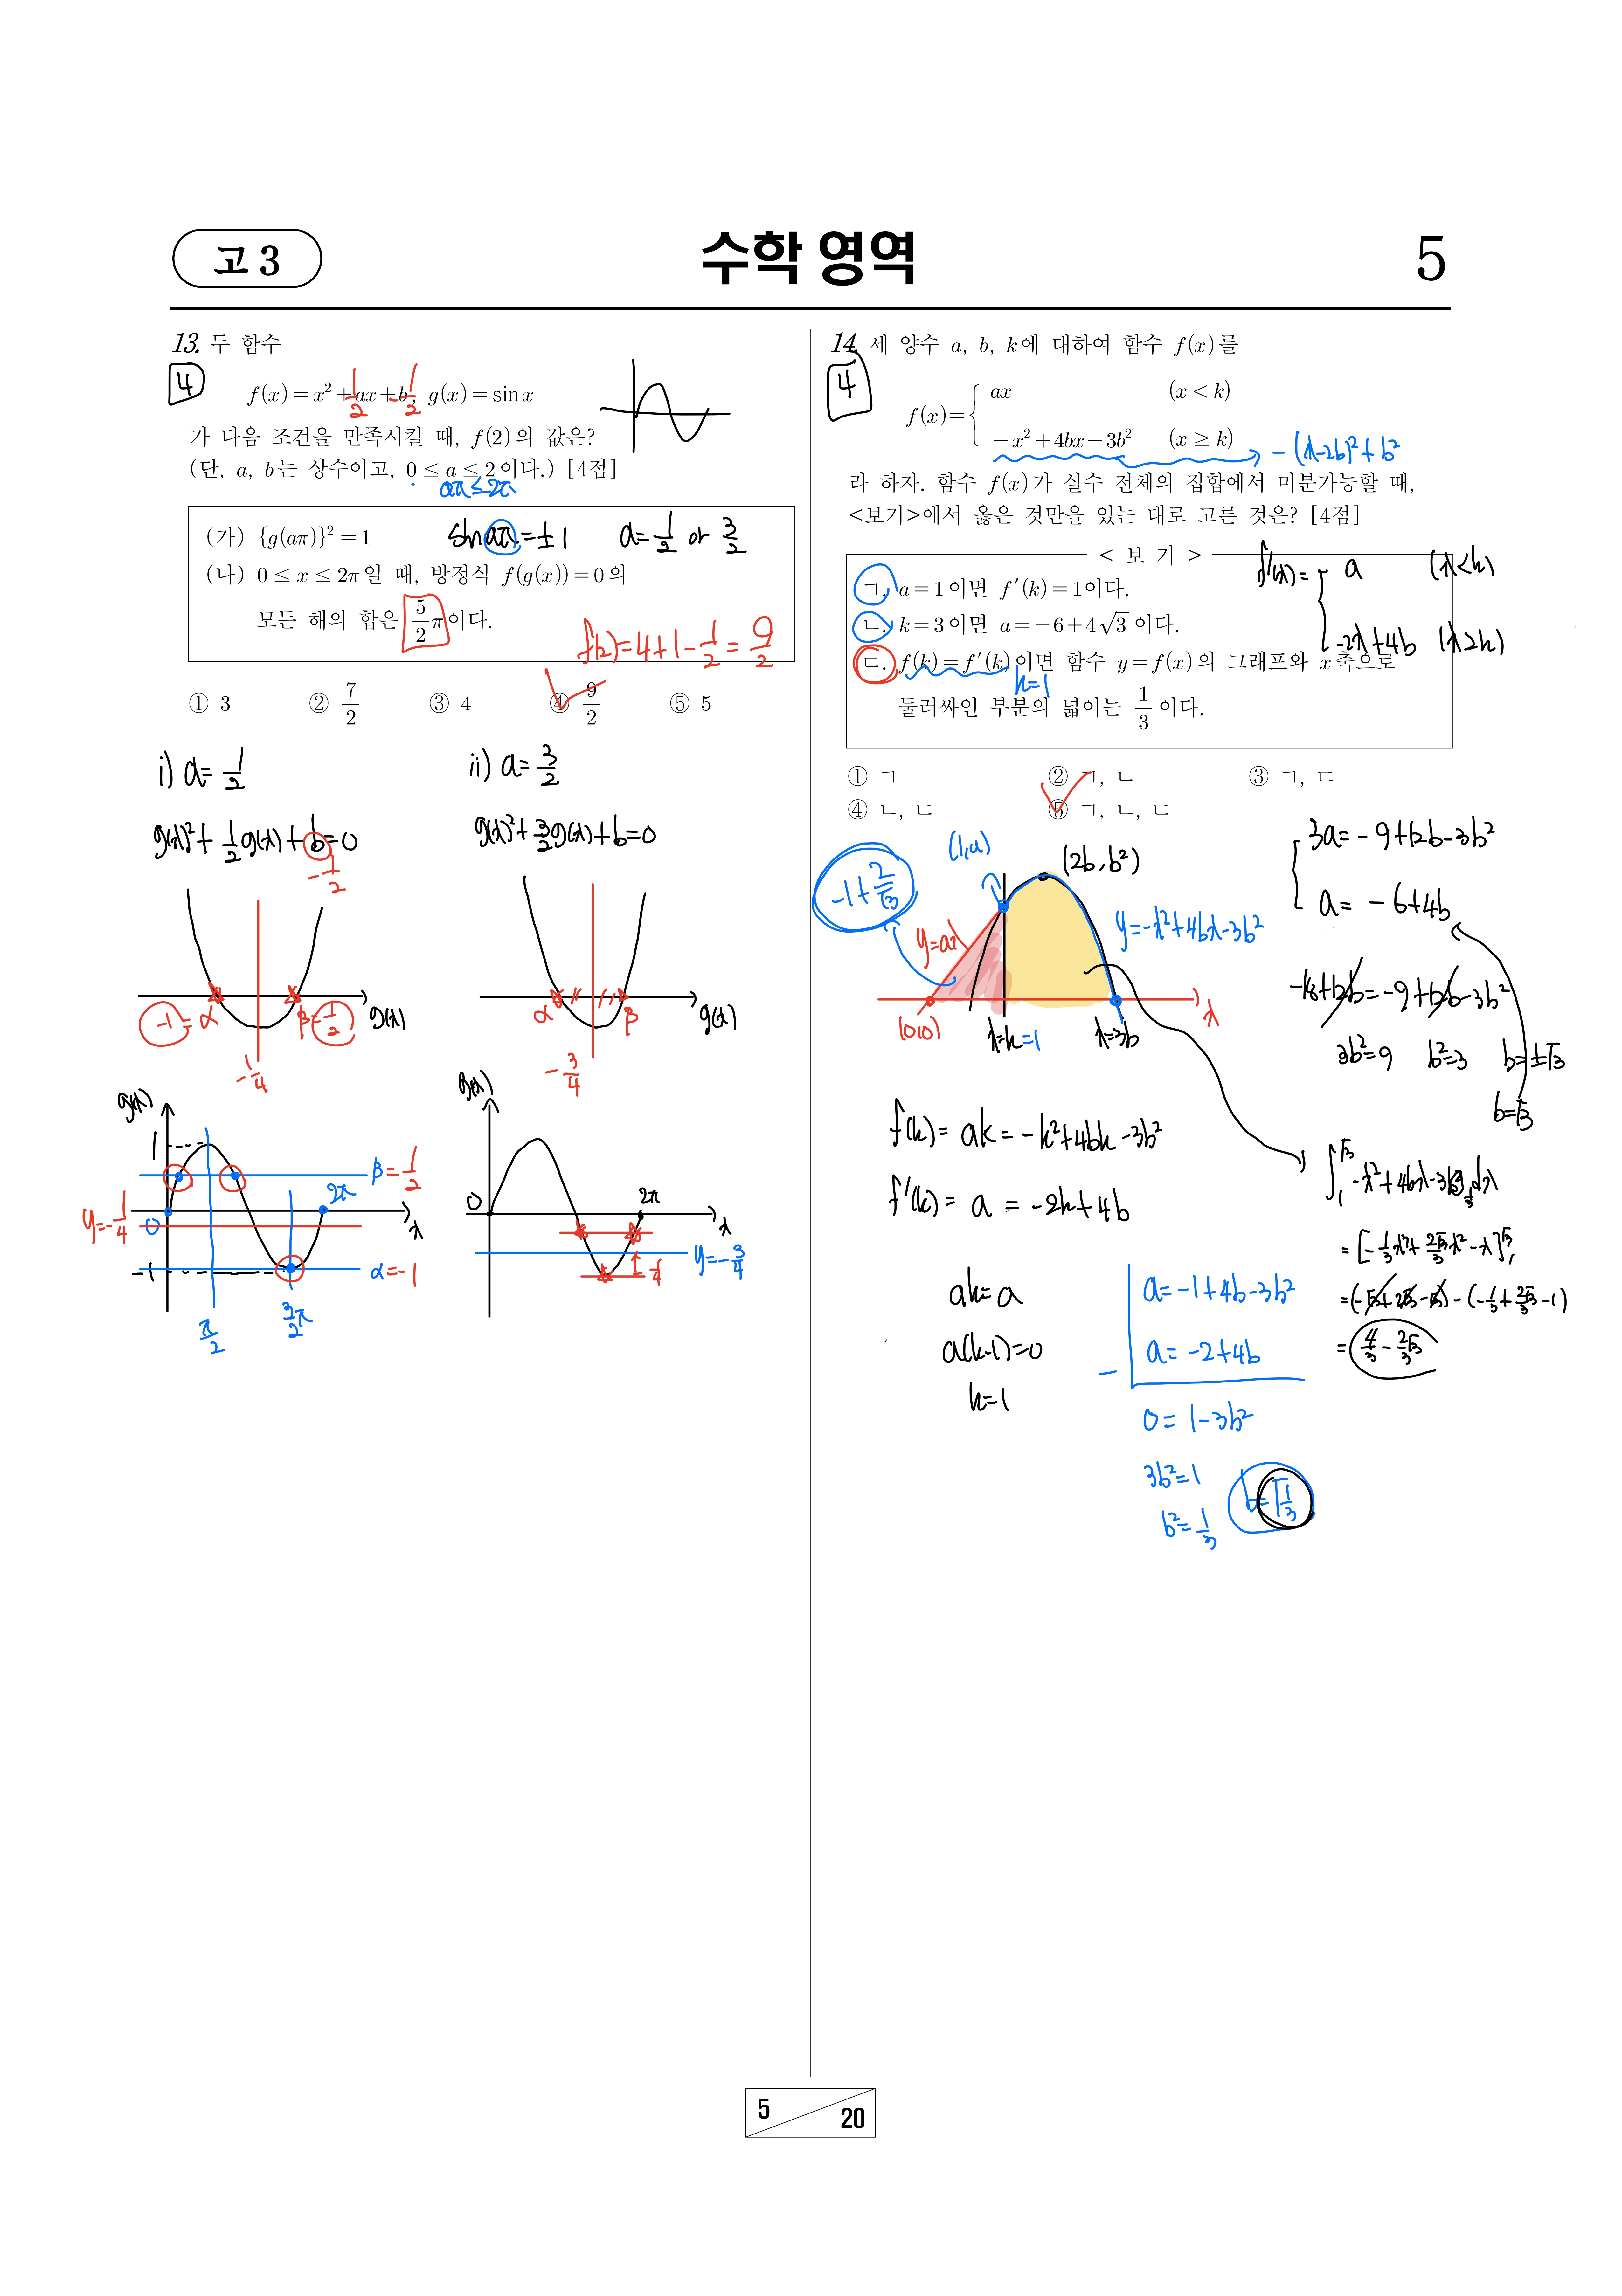 고 3
수학 영역
5
13. 두 함수
4
f(x)=x²+ax+b, g(x)=sin x
1/2
-1/2
가 다음 조건을 만족시킬 때, f(2)의 값은?
(단, a, b는 상수이고, 0≤a≤2이다.) [4점]
aπ≤2π
(가) {g(aπ)}²=1
sin aπ=±1
a=1/2 or 3/2
(나) 0≤x≤2π일 때, 방정식 f(g(x))=0의
모든 해의 합은 5/2π이다.
f(2)=4+1-1/2=9/2
① 3 ② 7/2 ③ 4 ④ 9/2 ⑤ 5
i) a=1/2
g(x)²+1/2g(x)+b=0
-1/2
-1=α
β=1/2
g(x)
-1/4
g(x)
1
β=1/2
2π
y=-1/4
0
x
-1
α=-1
π/2
3/2π
ii) a=3/2
g(x)²+3/2g(x)+b=0
α
β
g(x)
-3/4
g(x)
0
2π
x
y=-3/4
1/4
14. 세 양수 a, b, k에 대하여 함수 f(x)를
4
f(x)={ ax (x<k)
-x²+4bx-3b² (x≥k)
-(x-2b)²+b²
라 하자. 함수 f(x)가 실수 전체의 집합에서 미분가능할 때,
<보기>에서 옳은 것만을 있는 대로 고른 것은? [4점]
<보 기>
f'(x)={ a (x<k)
-2x+4b (x≥k)
ㄱ. a=1이면 f'(k)=1이다.
ㄴ. k=3이면 a=-6+4√3이다.
ㄷ. f(k)=f'(k)이면 함수 y=f(x)의 그래프와 x축으로
k=1
둘러싸인 부분의 넓이는 1/3이다.
① ㄱ ② ㄱ, ㄴ ③ ㄱ, ㄷ
④ ㄴ, ㄷ ⑤ ㄱ, ㄴ, ㄷ
-1+2/√3
(1,a)
(2b, b²)
y=ax
y=-x²+4bx-3b²
(0,0)
x=k=1
x=3b
x
3a=-9+12b-3b²
a=-6+4b
-18+12b=-9+12b-3b²
3b²=9 b²=3 b=±√3
b=√3
f(k)=ak=-k²+4bk-3b²
f'(k)=a=-2k+4b
ak=a
a(k-1)=0
k=1
a=-1+4b-3b²
a=-2+4b
-
0=1-3b²
3b²=1
b²=1/3
b=√1/3
=[-1/3x³+2√3/3x²-x]
=(-√3+2√3-√3)-(-1/3+2√3/3-1)
=4/3-2/3√3
5
20